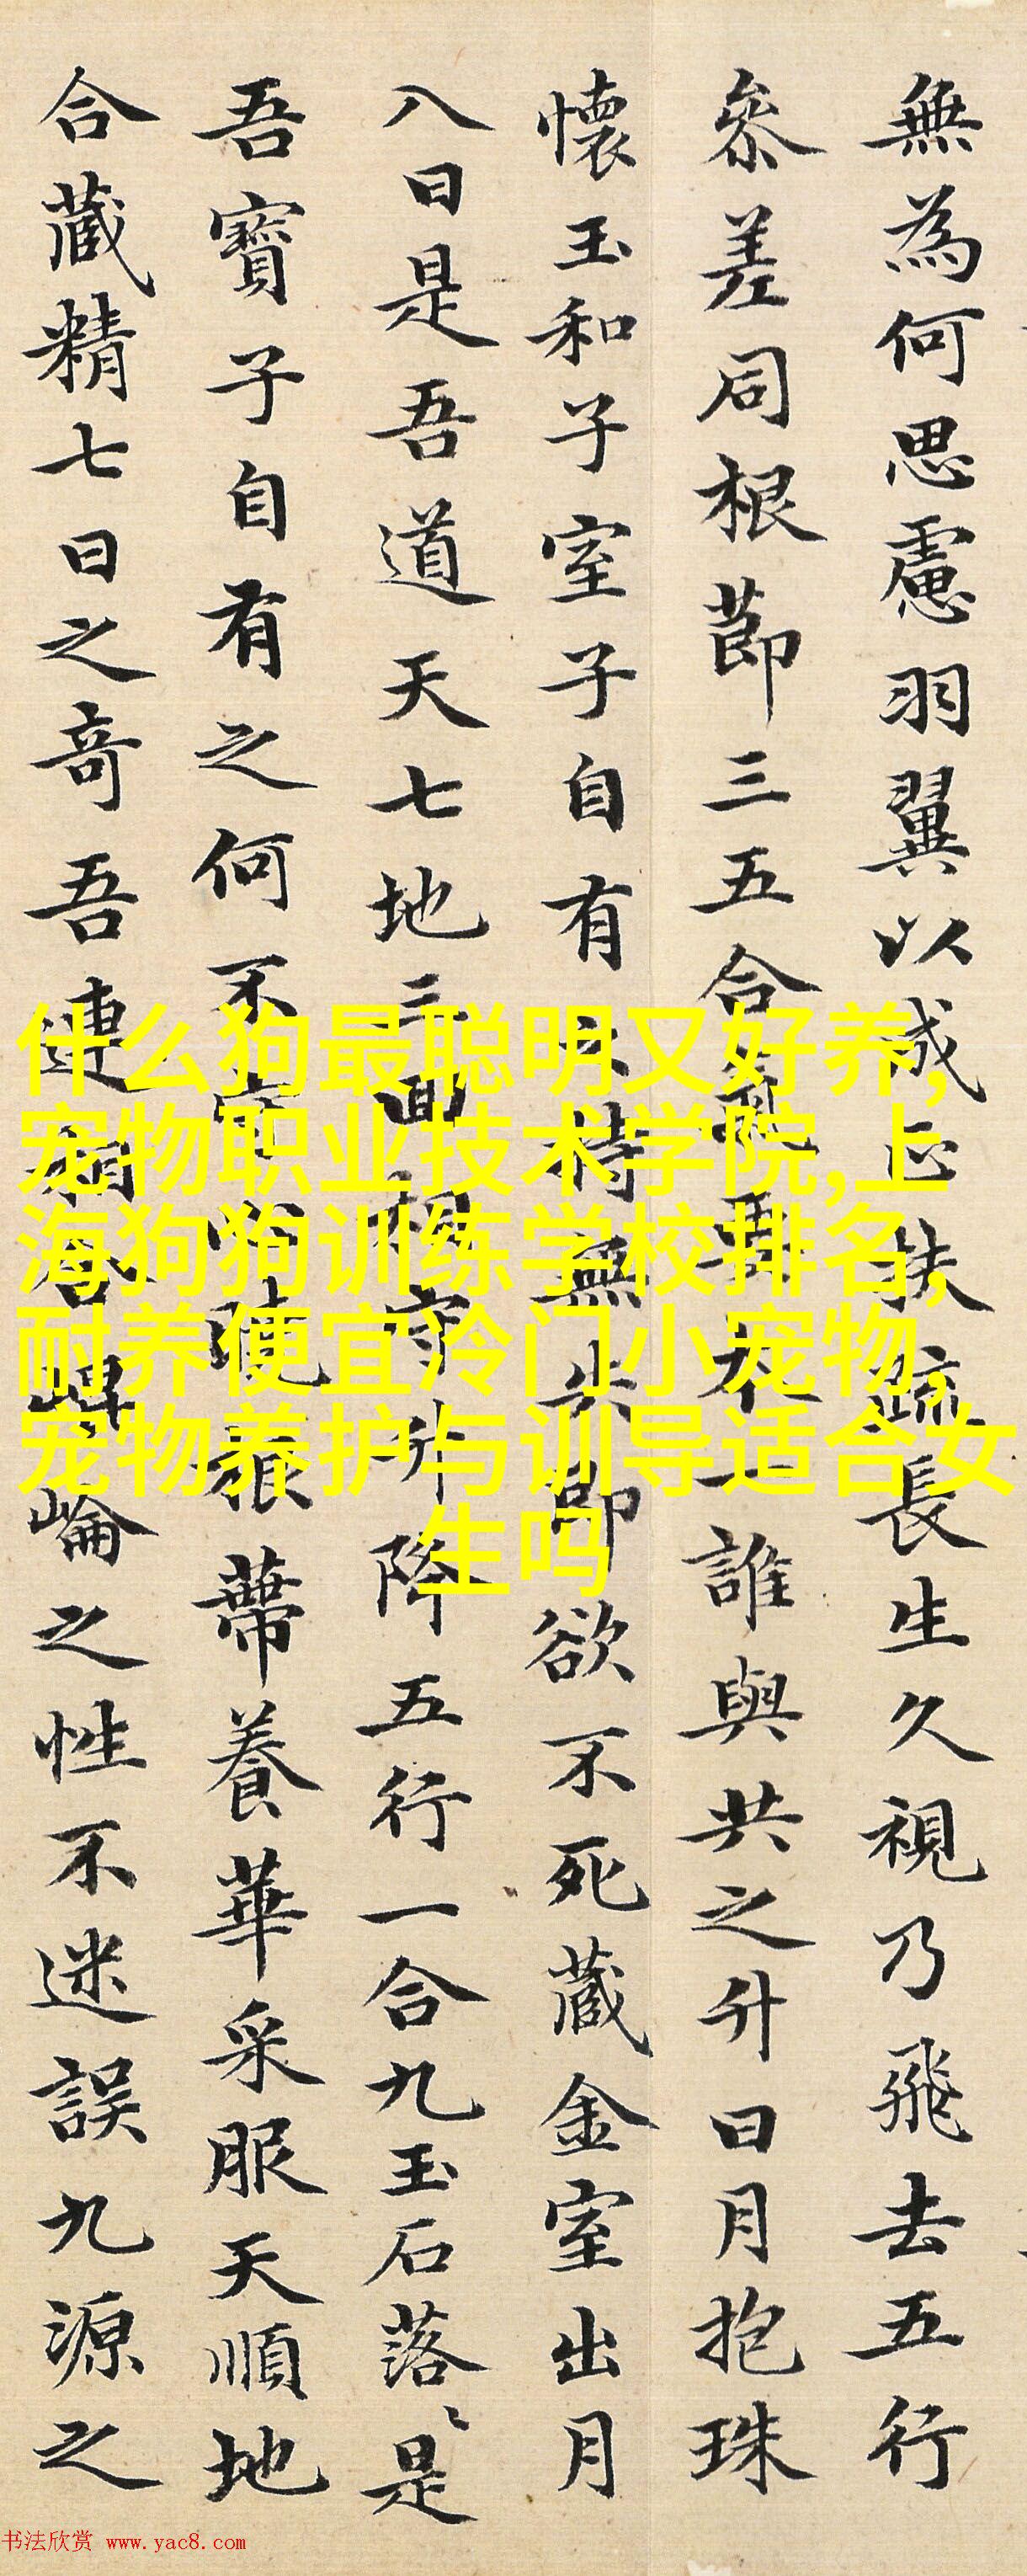 無為何思慮羽翼以成正扶疏長生久視乃飛去五行
參差同根節三五合氣要本一誰與共之升日月抱珠
懷玉和子室子自有之持無失即欲不死藏金室出月
八日是吾道天七地三回相守升降五行一合九玉石落〻是
吾寶子自有之何不守心曉根蔕養華采服天順地
合藏精七日之奇吾連相合崐崘之性不迷誤九源之
什么狗最聪明又好养,
宠物职业技术学院,上
海狗狗训练学校排名,
耐养便宜冷门小宠物,
宠物养护与训导适合女
生吗
书法欣赏 www.yac8.com